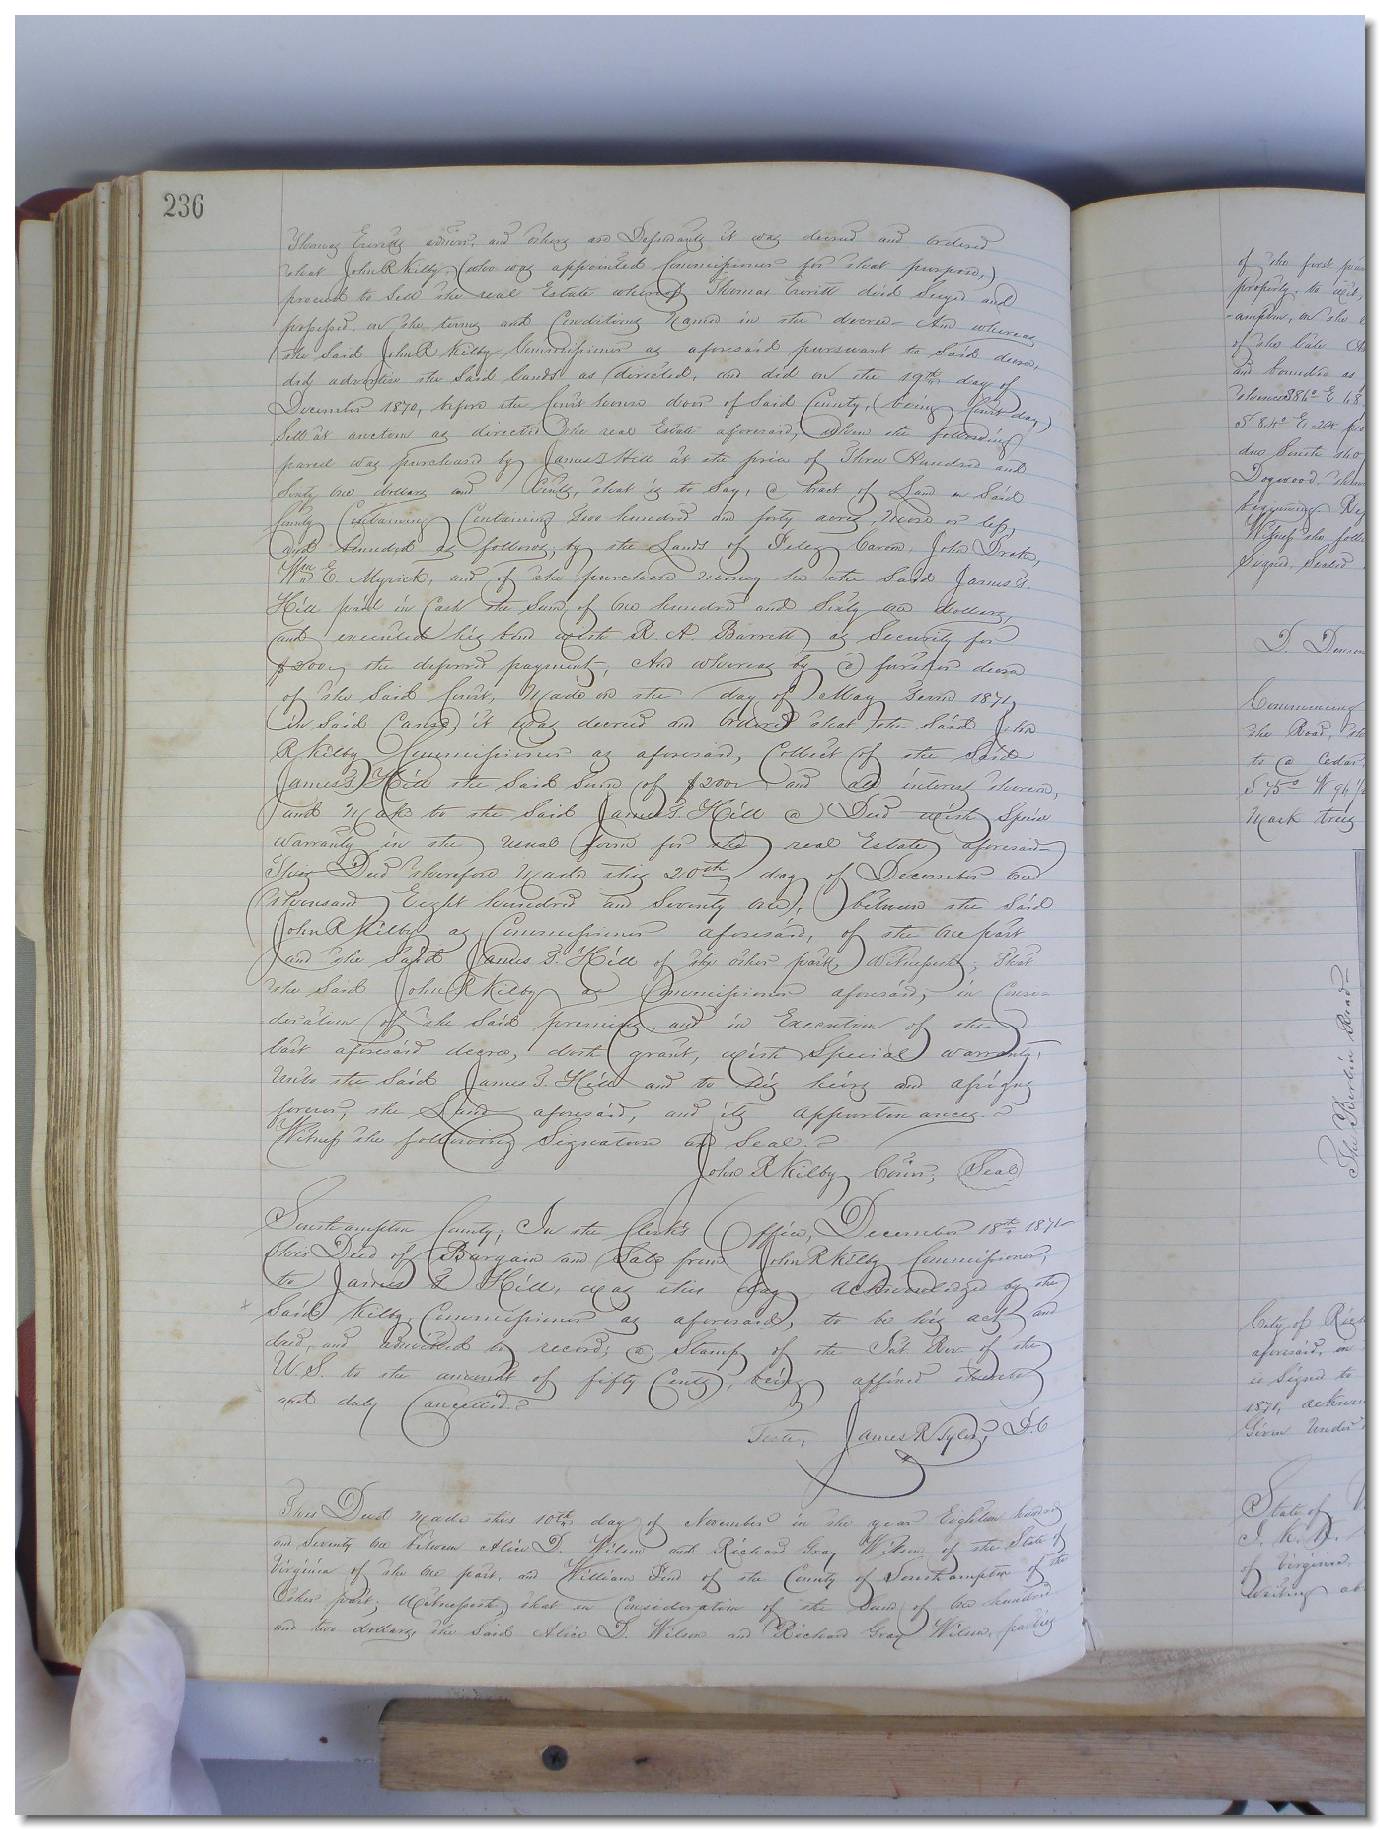 236
Thomas Everitts admor. and others are Defendants it was decreed and ordered
that John R Kilby, (who was appointed Commissioner for that purpose,)
proceed to Sell the real Estate whereof Thomas Everitt died Seized and
possessed on the terms and Conditions Named in the decree— And whereas
the Said John R Kilby Commissioner as aforesaid pursuant to Said decree,
did advertise the Said lands as directed, and did on the 19th day of
December 1870, before the Court house door of Said County, (being Court day,)
Sell at auction as directed the real Estate aforesaid, when the following
parcel was purchased by James T. Hill at the price of Three Hundred and
Sixty one dollars and Cents, that is to Say, a tract of Land in Said
County Containing Containing Two hundred and forty acres, more or less,
and bounded as follows, by the Lands of John Drake,
Wm E. Myrick, and of the purchase money he the Said James T.
Hill paid in Cash the Sum of One hundred and Sixty one dollars,
and executed his bond with R A. Barrett as Security for
$200, the deferred payment; And whereas by a further decree
of the Said Court, Made on the day of May Term 1871,
in Said Cause, it was decreed and Ordered that the Said John
R Kilby Commissioner as aforesaid, Collect of the Said
James T Hill the Said Sum of $200 and all interest thereon,
and Make to the Said James T. Hill a Deed with Special
warranty in the usual form for the real Estate aforesaid—
This Deed therefore Made this 20th day of December One
thousand Eight hundred and Seventy One, between the Said
John R Kilby as Commissioner aforesaid, of the One part
and the Said James T. Hill of the other part, Witnesseth; That
the Said John R Kilby as Commissioner aforesaid, in Consi=
=deration of the Said premises and in Execution of the
last aforesaid decree, doth grant, with Special warranty,
Unto the Said James T. Hill and to his heirs and assigns
forever, the Land aforesaid, and its appurtenances.
Witness the following Signature and Seal.
John R Kilby Comr; Seal
Southampton County; In the Clerk's Office, December 18th 1871
This Deed of Bargain and Sale from John R Kilby Commissioner,
to James T Hill, was this day Acknowledged by the
Said Kilby, Commissioner as aforesaid, to be his act and
deed, and admitted to record; a Stamp of the Int. Rev. of the
U. S. to the amount of fifty Cents, being affixed thereto
and duly Cancelled.
Teste, James R Tyler, D.C
This Deed made this 10th day of November in the year Eighteen hundred
and Seventy One between Alice D. Wilson and Richard Gray Wilson of the State of
Virginia of the One part, and William of the County of Southampton of the
Other part; Witnesseth, that in Consideration of the Sum of One hundred
and two dollars, the Said Alice D. Wilson and Richard Gray Wilson, parties
of the first
property, to wit,
=ampton, on the
of the late
and bounded as
S 84° E 24
due South 140
Dogwood,
beginning
Witness the
Signed, Sealed
Commencing
the Road,
to a Cedar
S 75° W 94
Mark trees
The Berlin Road—
City of
aforesaid, in
is Signed to
1871,
Given Under
State of
of Virginia
writing